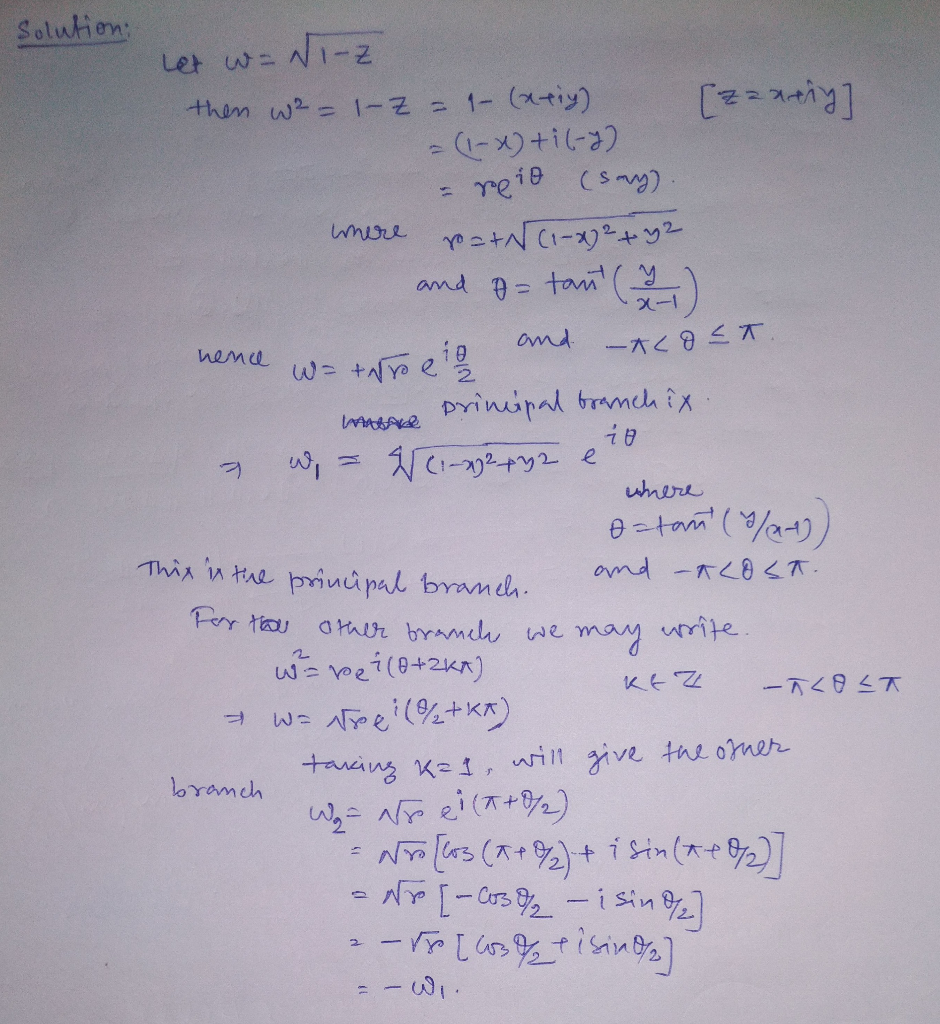 Solution:
Let w = √1-z
then w² = 1-z = 1- (x+iy) [z = x+iy]
= (1-x) + i(-y)
= re^{iθ} (say).
where r = +√(1-x)²+y²
and θ = tan⁻¹ (y/x-1)
hence w = +√r e^{iθ/2} and -π<θ ≤ π.
principal branch is
⇒ w₁ = ∜(1-x)²+y² e^{iθ}
where
θ = tan⁻¹ (y/(x-1))
This is the principal branch. and -π<θ≤π.
For the other branch we may write.
w² = re^{i(θ+2kπ)} k∈ℤ -π<θ≤π
⇒ w = √r e^{i(θ/2+kπ)}
taking k=1, will give the other
branch
w₂ = √r e^{i(π+θ/2)}
= √r [cos (π+θ/2) + i sin(π+θ/2)]
= √r [-cos θ/2 - i sin θ/2]
= -√r [cos θ/2 + i sin θ/2]
= - w₁.